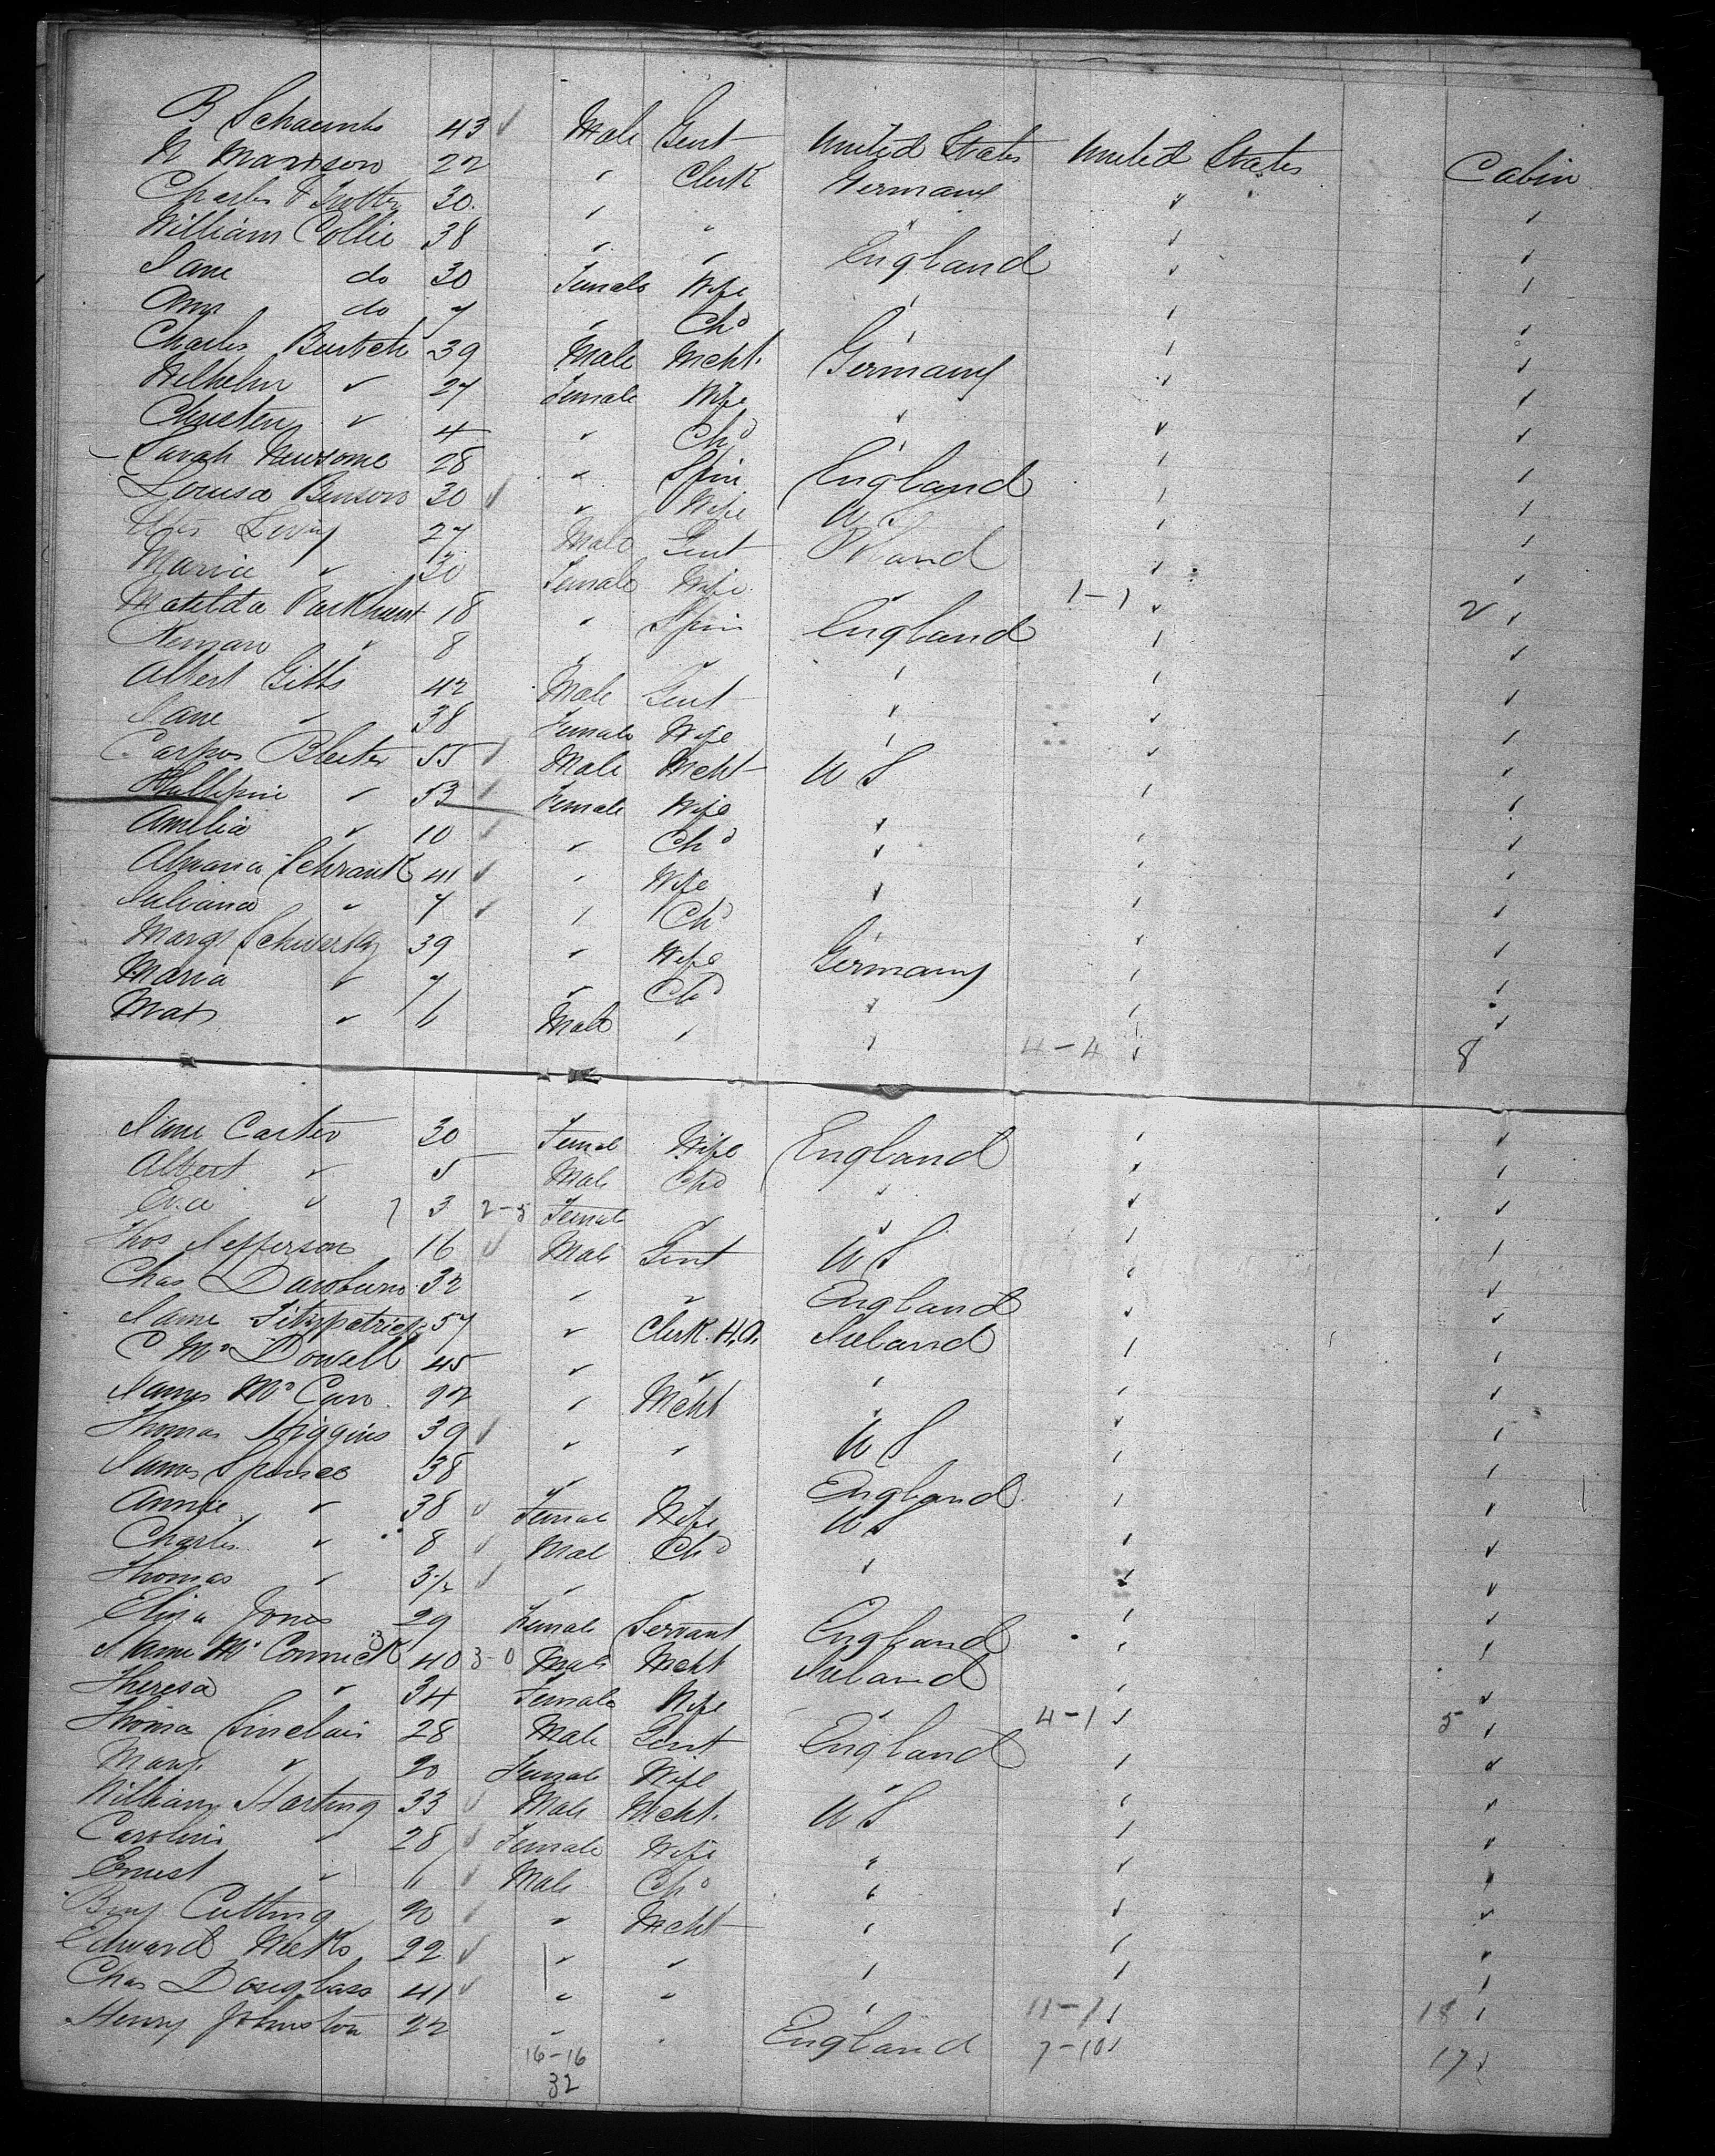 B Schaumb 43 ✓ Male Gent United States United States Cabin
N Marrison 22 " Clerk Germany
Charles F Trotter 30 " " "
William Collie 38 " " England
Jane do 30 Female Wife "
Amy do 7 " Chd "
Charles Bertsch 39 Male Mcht. Germany
Wilhelm " 27 Female Wife "
Christen " 4 " Chd "
Sarah Newsome 28 " Spin England
Louisa Benson 30 ✓ " Wife U S
Levy 27 Male Gent Poland
Marice " 30 Female Wife " 1-1 2
Matilda Parkhurst 18 " Spin England
8 " " "
Albert Gitts 42 Male Gent "
Jane " 38 Female Wife "
Carpos Bleiter 55 ✓ Male Mcht U S
Phillipine " 53 ✓ Female Wife "
Amelia " 10 ✓ " Chd "
Almania Schrank 41 ✓ " Wife "
Juliana " 7 ✓ " Chd "
Margt Schwertz 39 " Wife Germany
Maria " 7 " Chd "
Max " 6 Male " " 4-4 8
Jane Carter 30 Female Wife England
Albert " 5 Male Chd "
Eva " 3 2-5 Female " "
Thos Jefferson 16 ✓ Male Gent U S
Chas Duroburn 32 " " England
Jame Fitzpatrick 57 " Clerk. H.O. Ireland
C McDowell 45 " " "
James McCan 22 " Mcht "
Thomas Higgins 39 ✓ " " U S
James Spence 38 " England
Annie " 38 ✓ Female Wife U S
Charles " 8 ✓ Male Chd "
Thomas " 3½ ✓ "
Eliza Jones 29 Female Servant England
Jame McCormick 40 3-0 Male Mcht Ireland
Theresa " 34 Female Wife " 4-1 5
Thomas Sinclair 28 Male Gent England
Mary " 20 Female Wife "
William Harting 33 ✓ Male Mcht. U S
Caroline " 28 ✓ Female Wife "
Ernest " 6 ✓ Male Chd "
Benj Cutting 20 ✓ " Mcht "
Edward Weeks 22 ✓ " " "
Chas Douglass 41 ✓ " " " 11-7 18
Henry Johnston 22 " " England 7-10 17
16-16
32